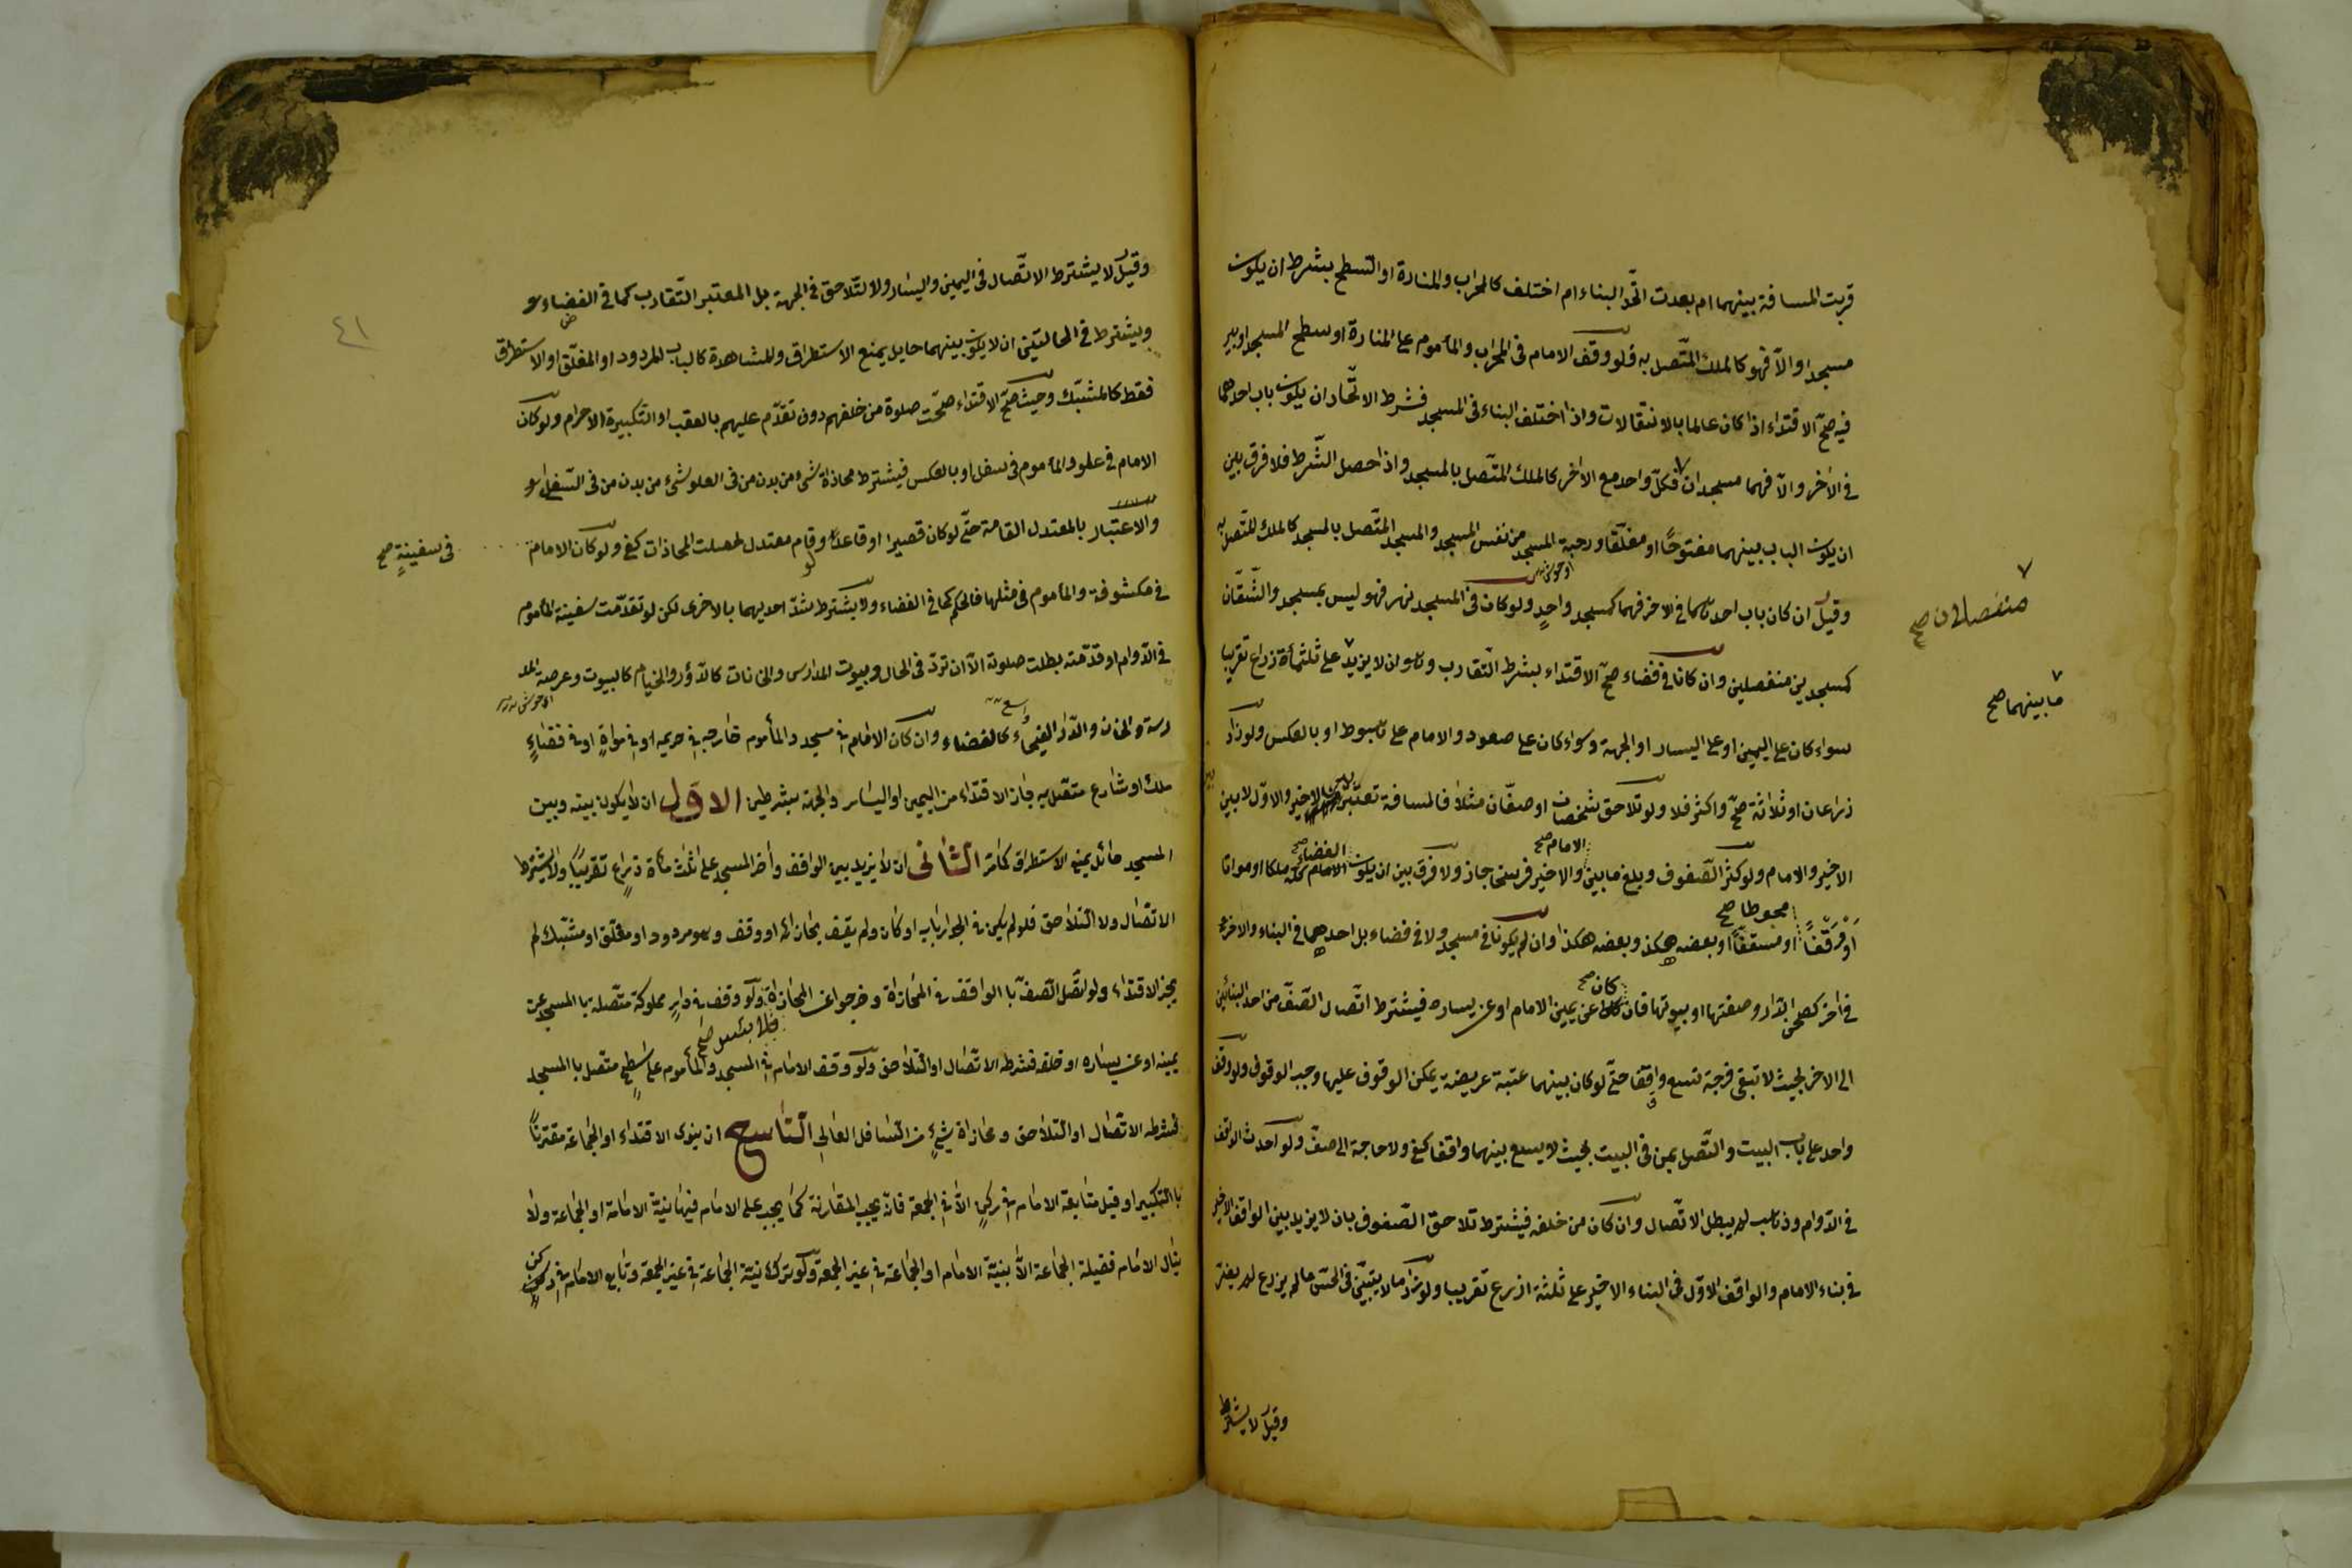 قربت المسافة بينهما ام بعدت اتّحد البناء ام اختلف كالمحراب والمنارة او السّطح بشرط ان يكون
مسجدا والّا فهو كالملك المتّصل به فلو وقف الامام فى المحراب والمأموم على المنارة او سطح المسجد او بير
فيه صحّ الاقتداء اذا كان عالما بالانتقالات واذا اختلف البناء فى المسجد فشرط الاتّحاد ان يكون باب احدهما
فى الاخر والّا فهما مسجدان فكلّ واحد مع الاخر كالملك المتّصل بالمسجد واذا حصل الشّرط فلا فرق بين
ان يكون الباب بينهما مفتوحًا او مغلقا ورحبة المسجد من نفس المسجد والمسجد المتّصل بالمسجد كالملك المتّصل به
منفصلان صح
وقيل ان كان باب احدهما فى الاخر فهما كمسجد واحدٍ ولو كان فى المسجد نهر فهو ليس بمسجد والشّقّان
او حوش
كمسجدين منفصلين وان كانا فى فضاء صحّ الاقتداء بشرط التّقارب وهو ان لا يزيد على ثلثمأة ذراع تقريبا
ما بينهما صح
سواء كان على اليمين او على اليسار او الجهة وسواء كان على صعود والامام على هبوط او بالعكس ولو زاد
ذراعان او ثلاثة صحّ واكثر فلا ولو تلاحق شخصان او صفّان مثلا فالمسافة تعتبر بين الاخير والاوّل لا بين
الاخير والامام ولو كثر الصّفوف وبلغ ما بين والاخير فرسخا جاز ولا فرق بين ان يكون ملكا او مواتا
الامام صح
الفضاء صح
او وقفًا او مسقفًا او بعضه هكذ وبعضه هكذا وان لم يكونا فى مسجد ولا فى فضاء بل احدهما فى البناء والاخر
محوطا صح
فى اخر كصحن الدّار وصفتها او بيوتها فان عن يمين الامام او عن يساره فيشترط اتّصال الصّفّ من احد البنائين
كان صح
الى الاخر بحيث لا تبقى فرجة تسع واقفا حتّى لو كان بينهما عتبة عريضة يمكن الوقوف عليها وجب الوقوف ولو وقف
واحد على باب البيت والتّصل بمن فى البيت بحيث لا يسع بينهما واقفا كفى ولا حاجة الى صفّ ولو احدث الواقف
فى الدّوام وذهب لم يبطل الاتّصال وان كان من خلفه فيشترط تلاحق الصّفوف بان لا يزيد بين الواقف الاخير
فى بناء الامام والواقف الاوّل فى البناء الاخير على ثلثة اذرع تقريبا ولو زاد ما لا يتبيّن فى الحسّ ما لم يزرع لم يضرّ
وقيل لا يشترط
٤١
وقيل لا يشترط الاتّصال فى اليمين واليسار ولا التّلاحق فى الجهة بل المعتبر التّقارب كما فى الفضاء
ويشترط فى الحالتين ان لا يكون بينهما حايل يمنع الاستطراق والمشاهدة كالباب المردود او المغلّق او الاستطراق
فقط كالمشبّك وحيث صحّ الاقتداء صحّت صلوة من خلفهم دون تقدّم عليهم بالعقب او التكبيرة الاحرام ولو كان
الامام فى علو والمأموم فى سفل او بالعكس فيشترط محاذاة شىء من بدن من فى العلو شىء من بدن من فى السّفل
والاعتبار بالمعتدل القامة حتّى لو كان قصيرا او قاعدا ولو قام معتدل لحصلت المحاذات كفى ولو كان الامام
فى سفينةٍ صح
فى مكشوفة والمأموم فى مثلها فالحكم كما فى الفضاء ولا يشترط شدّ احديهما بالاخرى لكن لو تقدّمت سفينة المأموم
فى الدّوام او قدّمته بطلت صلوته الّا ان تردّ فى الحال وبيوت المدارس والخانات كالدّور والخيام كالبيوت وعرصة المد
رسة والخان والدّار الفيحاء كالفضاء وان كان الامام فى مسجد والمأموم خارجه فى حريمه او فى مواةٍ او فى فضاءٍ
ملك او شارع متّصل به جاز الاقتداء من اليمين او اليسار والجهة بشرطين الاوّل ان لا يكون بينه وبين
المسجد حائل يمنع الاستطراق كما مرّ الثّانى ان لا يزيد بين الواقف وأخر المسجد على اثلث مأة ذراع تقريبًا ولا يشترط
الاتّصال ولا التلاحق فلو لم يكن فى الجوار باب او كان ولم يقف بحذائه او وقف وهو مردود او مغلق او مشبّك لم
يجز الاقتداء ولو اتّصل الصّفّ با الواقف فى المحاذاة وخرجوا عن المحاذاة ولو وقف فى دارٍ مملوكة متّصله با المسجد عن
يمينه او عن يساره او خلفه فشرطه الاتّصال او التلاحق ولو وقف الامام فى المسجد والمأموم على سطحٍ متّصل با المسجد
فشرطه الاتّصال او التلاحق ومحاذاة شىءٍ من السّافل العالى التّاسع ان ينوى الاقتداء او الجماعة مقترنًا
با التكبير او قبل متابعة الامام فى ركنٍ الّا فى الجمعة فانّه يجب المقارنة كما يجب على الامام فيها نيّة الامامة او الجماعة ولا
ينال الامام فضيلة الجماعة الّا بنيّة الامام او الجماعة فى غير الجمعة ولو ترك نيّة الجماعة فى غير الجمعة وتابع الامام فى ركن